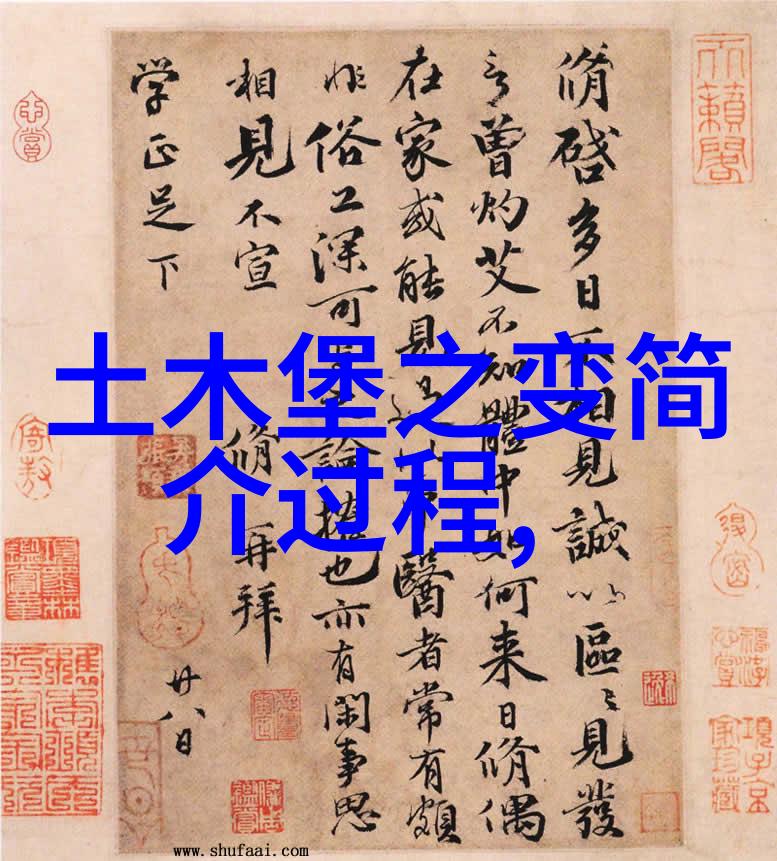 土木堡之变简
介过程,
脩啓多日不相見誠以區〻見發
言曾灼艾不知體中如何来日脩偶
在家或能見過醫者常有頗
非俗工深可論權也亦有閑事思
相見不宣
脩再拜
廿八日
学正足下
天籟閣
www.shufaai.com